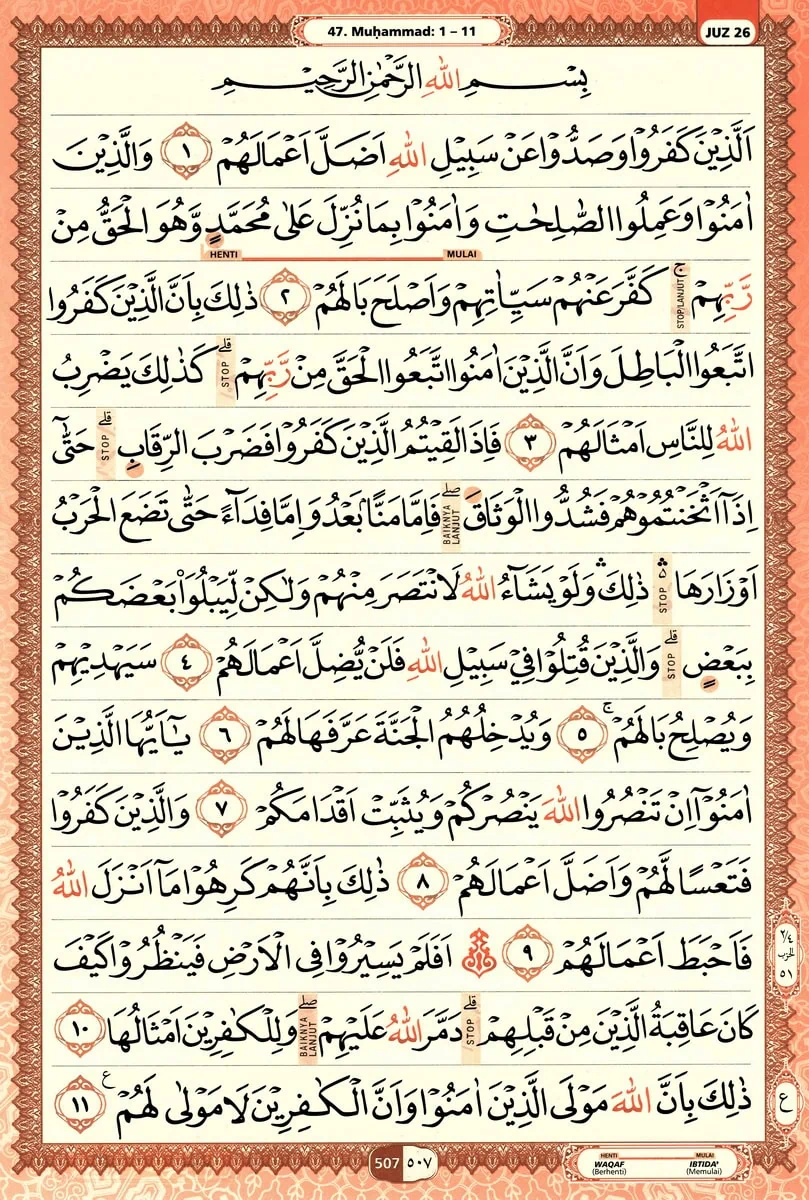 47. Muḥammad: 1 – 11
JUZ 26
بِسْمِ اللّٰهِ الرَّحْمٰنِ الرَّحِيْمِ
اَلَّذِيْنَ كَفَرُوْا وَصَدُّوْا عَنْ سَبِيْلِ اللّٰهِ اَضَلَّ اَعْمَالَهُمْ ۝١ وَالَّذِيْنَ
اٰمَنُوْا وَعَمِلُوا الصّٰلِحٰتِ وَاٰمَنُوْا بِمَا نُزِّلَ عَلٰى مُحَمَّدٍ وَّهُوَ الْحَقُّ مِنْ
HENTI MULAI
رَّبِّهِمْ ۚ كَفَّرَ عَنْهُمْ سَيِّاٰتِهِمْ وَاَصْلَحَ بَالَهُمْ ۝٢ ذٰلِكَ بِاَنَّ الَّذِيْنَ كَفَرُوا
STOP/LANJUT
اتَّبَعُوا الْبَاطِلَ وَاَنَّ الَّذِيْنَ اٰمَنُوا اتَّبَعُوا الْحَقَّ مِنْ رَّبِّهِمْ ۗ كَذٰلِكَ يَضْرِبُ
STOP
اللّٰهُ لِلنَّاسِ اَمْثَالَهُمْ ۝٣ فَاِذَا لَقِيْتُمُ الَّذِيْنَ كَفَرُوْا فَضَرْبَ الرِّقَابِ ۗ حَتّٰٓى
STOP
اِذَآ اَثْخَنْتُمُوْهُمْ فَشُدُّوا الْوَثَاقَ ۖ فَاِمَّا مَنًّاۢ بَعْدُ وَاِمَّا فِدَاۤءً حَتّٰى تَضَعَ الْحَرْبُ
BAIKNYA LANJUT
اَوْزَارَهَا ۛ ذٰلِكَ ۛ وَلَوْ يَشَاۤءُ اللّٰهُ لَانْتَصَرَ مِنْهُمْ وَلٰكِنْ لِّيَبْلُوَا۟ بَعْضَكُمْ
STOP
بِبَعْضٍ ۗ وَالَّذِيْنَ قُتِلُوْا فِيْ سَبِيْلِ اللّٰهِ فَلَنْ يُّضِلَّ اَعْمَالَهُمْ ۝٤ سَيَهْدِيْهِمْ
STOP
وَيُصْلِحُ بَالَهُمْ ۚ ۝٥ وَيُدْخِلُهُمُ الْجَنَّةَ عَرَّفَهَا لَهُمْ ۝٦ يٰٓاَيُّهَا الَّذِيْنَ
اٰمَنُوْٓا اِنْ تَنْصُرُوا اللّٰهَ يَنْصُرْكُمْ وَيُثَبِّتْ اَقْدَامَكُمْ ۝٧ وَالَّذِيْنَ كَفَرُوْا
فَتَعْسًا لَّهُمْ وَاَضَلَّ اَعْمَالَهُمْ ۝٨ ذٰلِكَ بِاَنَّهُمْ كَرِهُوْا مَآ اَنْزَلَ اللّٰهُ
فَاَحْبَطَ اَعْمَالَهُمْ ۝٩ اَفَلَمْ يَسِيْرُوْا فِى الْاَرْضِ فَيَنْظُرُوْا كَيْفَ
٢/٤
الحزب
٥١
كَانَ عَاقِبَةُ الَّذِيْنَ مِنْ قَبْلِهِمْ ۗ دَمَّرَ اللّٰهُ عَلَيْهِمْ ۖ وَلِلْكٰفِرِيْنَ اَمْثَالُهَا ۝١٠
STOP
BAIKNYA LANJUT
ذٰلِكَ بِاَنَّ اللّٰهَ مَوْلَى الَّذِيْنَ اٰمَنُوْا وَاَنَّ الْكٰفِرِيْنَ لَا مَوْلٰى لَهُمْ ࣖ ۝١١
ع
507 ٥٠٧
HENTI MULAI
WAQAF IBTIDA'
(Berhenti) (Memulai)